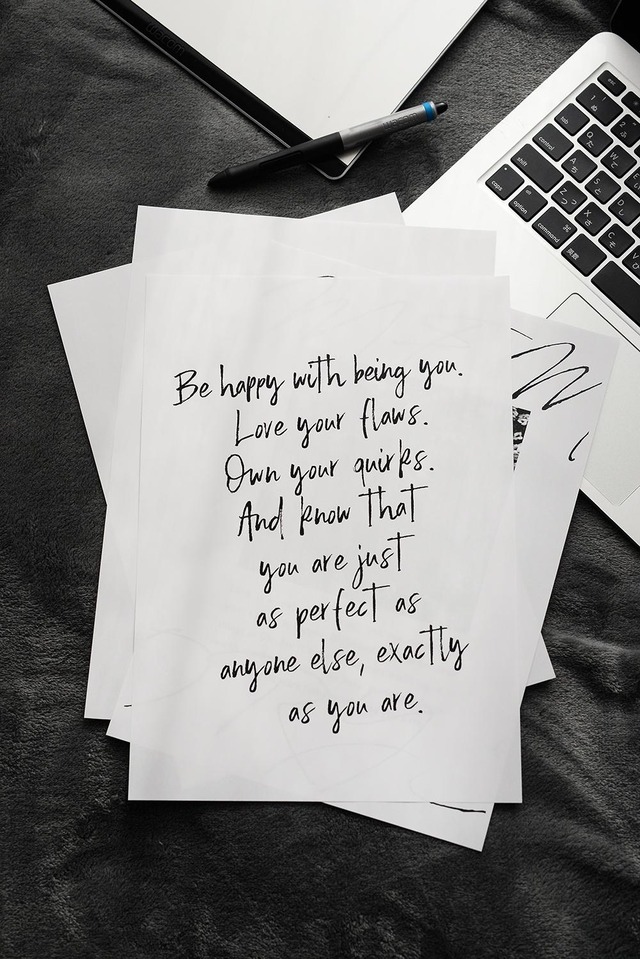 Be happy with being you.
Love your flaws.
Own your quirks.
And know that
you are just
as perfect as
anyone else, exactly
as you are.
esc
tab
control
shift
caps
option
command
英数